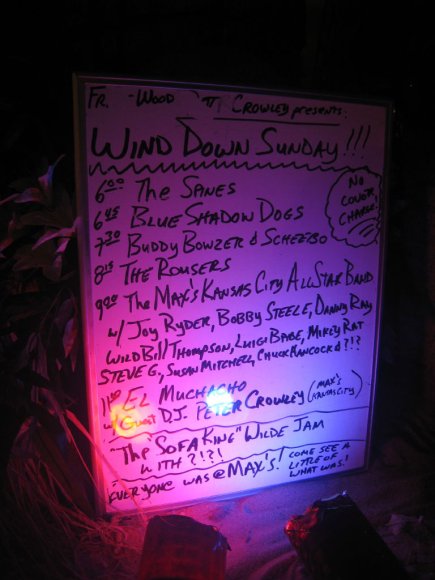 FR. -WOOD CROWLEY presents:
WIND DOWN SUNDAY!!!
NO COVER CHARGE!
6:00 THE SPINES
6:45 BLUE SHADOW DOGS
7:30 BUDDY BOWZER & SCHEEBO
8:15 THE ROUSERS
9:00 THE MAX'S KANSAS CITY ALLSTAR BAND
W/ JOY RYDER, BOBBY STEELE, DANNY RAY,
WILD BILL THOMPSON, LUIGI BABE, MIKEY RAT
STEVE G, SUSAN MITCHELL, CHUCK HANCOCK & ?!?
11:00 EL MUCHACHO
W/ GUEST D.J. PETER CROWLEY (MAX'S KANSAS CITY)
THE "SOFA KING" WILDE JAM
WITH ?!?!
EVERYONE WAS @ MAX'S! COME SEE A
LITTLE OF
WHAT WAS!